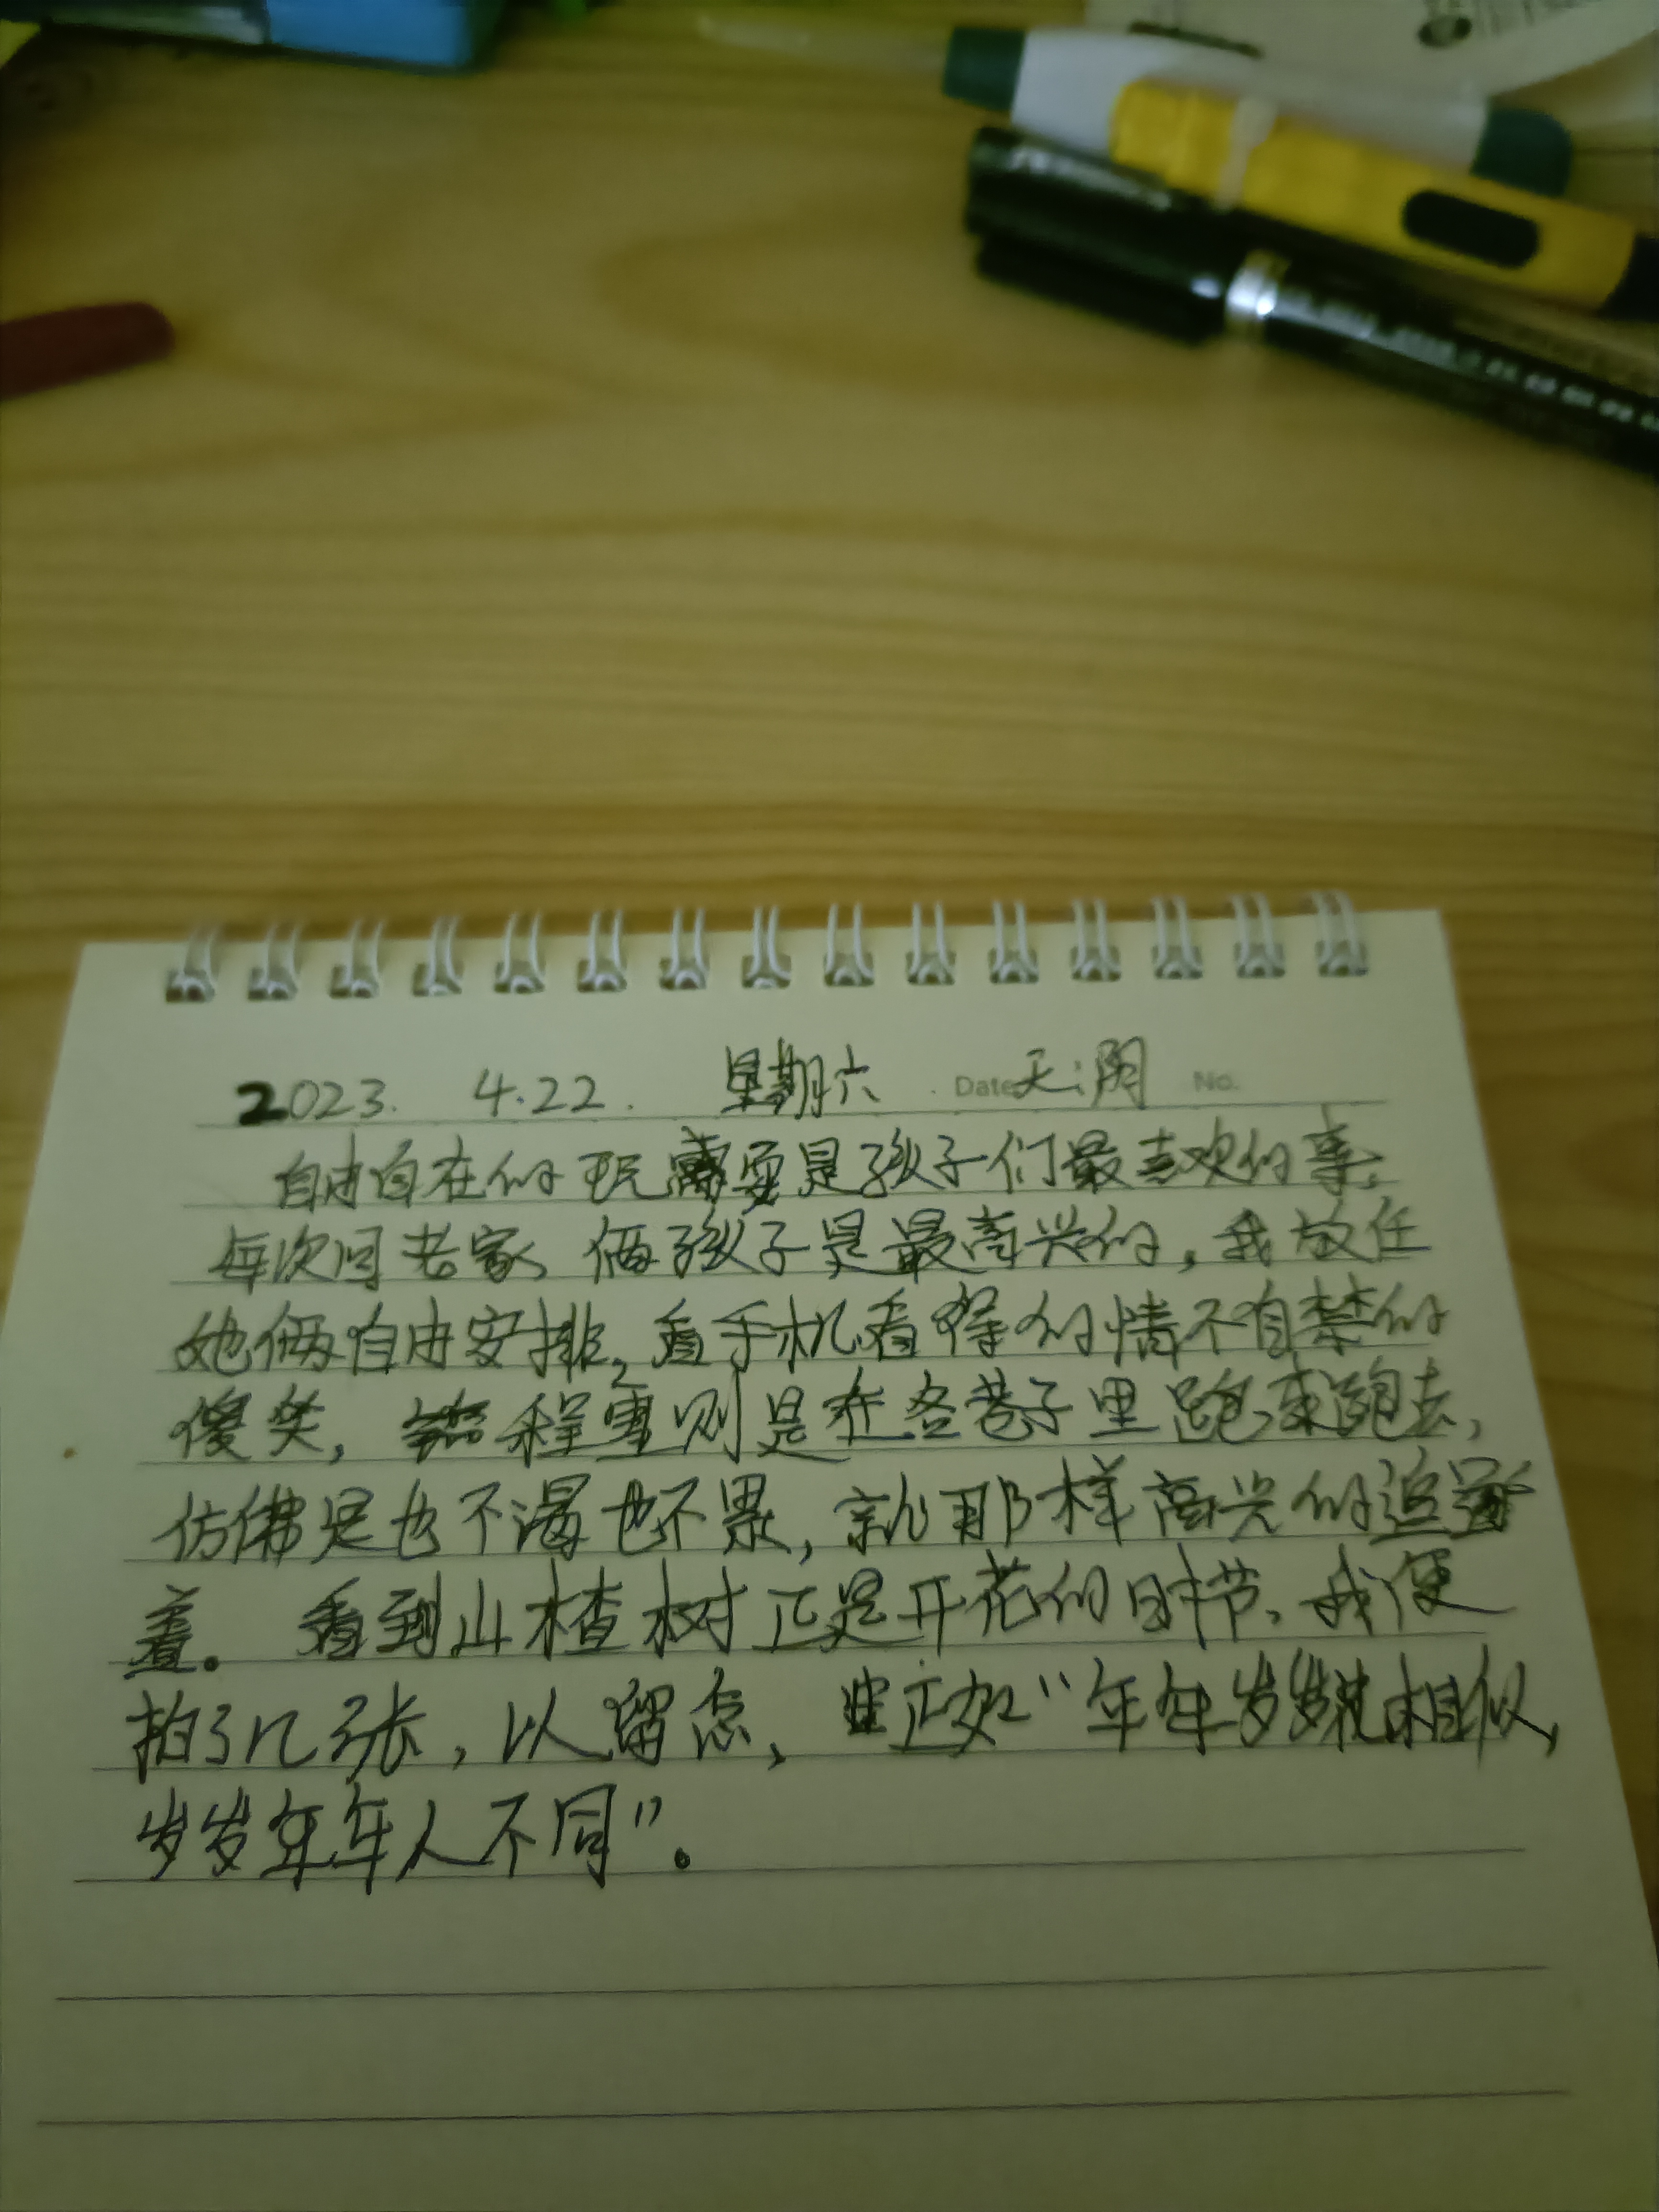 2023. 4.22. 星期六 Date 天:阴 No.
自由自在的玩耍是孩子们最喜欢的事,
每次回老家,俩孩子是最高兴的,我放任
她俩自由安排,看手机看得的情不自禁的
傻笑,程雪则是在各巷子里跑来跑去,
仿佛是也不渴也不累,就那样高兴的追
着。看到山楂树正是开花的时节,我便
拍了几张,以留念,正如“年年岁岁花相似,
岁岁年年人不同”。